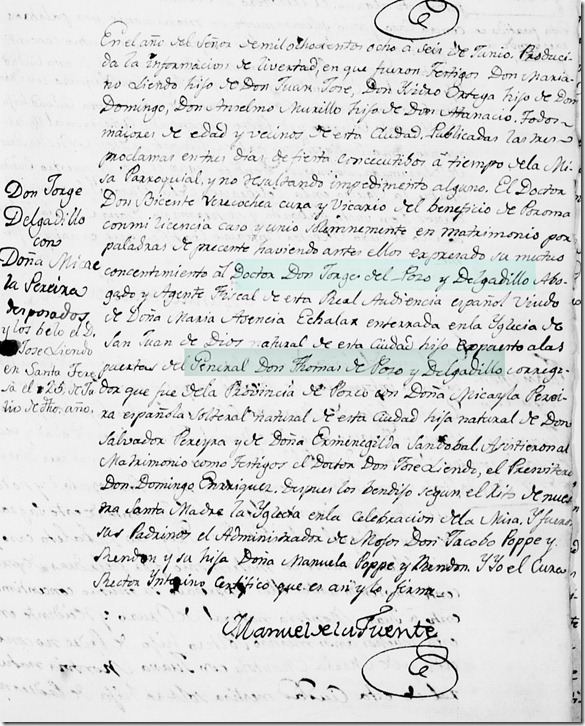 En el año del Señor de mil ochocientos ocho á Seis de Junio. Produci-
da la informacion de livertad, en que fueron testigos Don Maria-
no Liendo hijo de Don Juan José, Don Ysidro Ortega hijo de Don
Domingo, Don Anselmo Murillo hijo de Don Atanacio. Todos
maiores de edad y vecinos de esta Ciudad, Publicadas las tres
proclamas en tres dias de fiesta concecutibos á tiempo de la Mi-
sa Parroquial, y no resultando impedimento alguno. El Doctor
Don Bicente Verecochea cura y Vicario del beneficio de Poroma
con mi licencia caso y unio Solemnemente en matrimonio por
palabras de precente haviendo antes ellos exprezado su mutuo
concentimiento al Doctor Don Jorge del Pozo y Delgadillo Abo-
gado y Agente Fiscal de esta Real Audiencia español Viudo
de Doña Maria Asencia Echalar enterrada en la Yglecia de
San Juan de Dios natural de esta Ciudad hijo Expuesto a las
puertas del General Don Thomas de Pozo y Delgadillo corregi-
dor que fue de la Provincia de Porco con Doña Micayla Perei-
ra española Solteral natural de esta Ciudad hija natural de Don
Salvador Pereyra y de Doña Ermenegilda Sandobal. Asistieron al
Matrimonio como testigos el Doctor Don Jose Liendo, el Presvitero
Don Domingo Enrriquez. Despues los bendijo segun el Rito de nues-
tra Santa Madre la Yglecia en la Celebracion de la Misa. Y fueron
sus Padrinos el Administrador de Mojos Don Jacobo Poppe y
Rendon y su hija Doña Manuela Poppe y Rendon. Y Yo el Cura
Rector Interino Certifico que es asi y lo firme
Manuel de la Fuente
Don Jorge
Delgadillo
con
Doña Micae
la Pereira
desposados
y los belo el D.
Jose Liendo
en Santa Tere
sa el 25 de Ju
nio de dho, año,